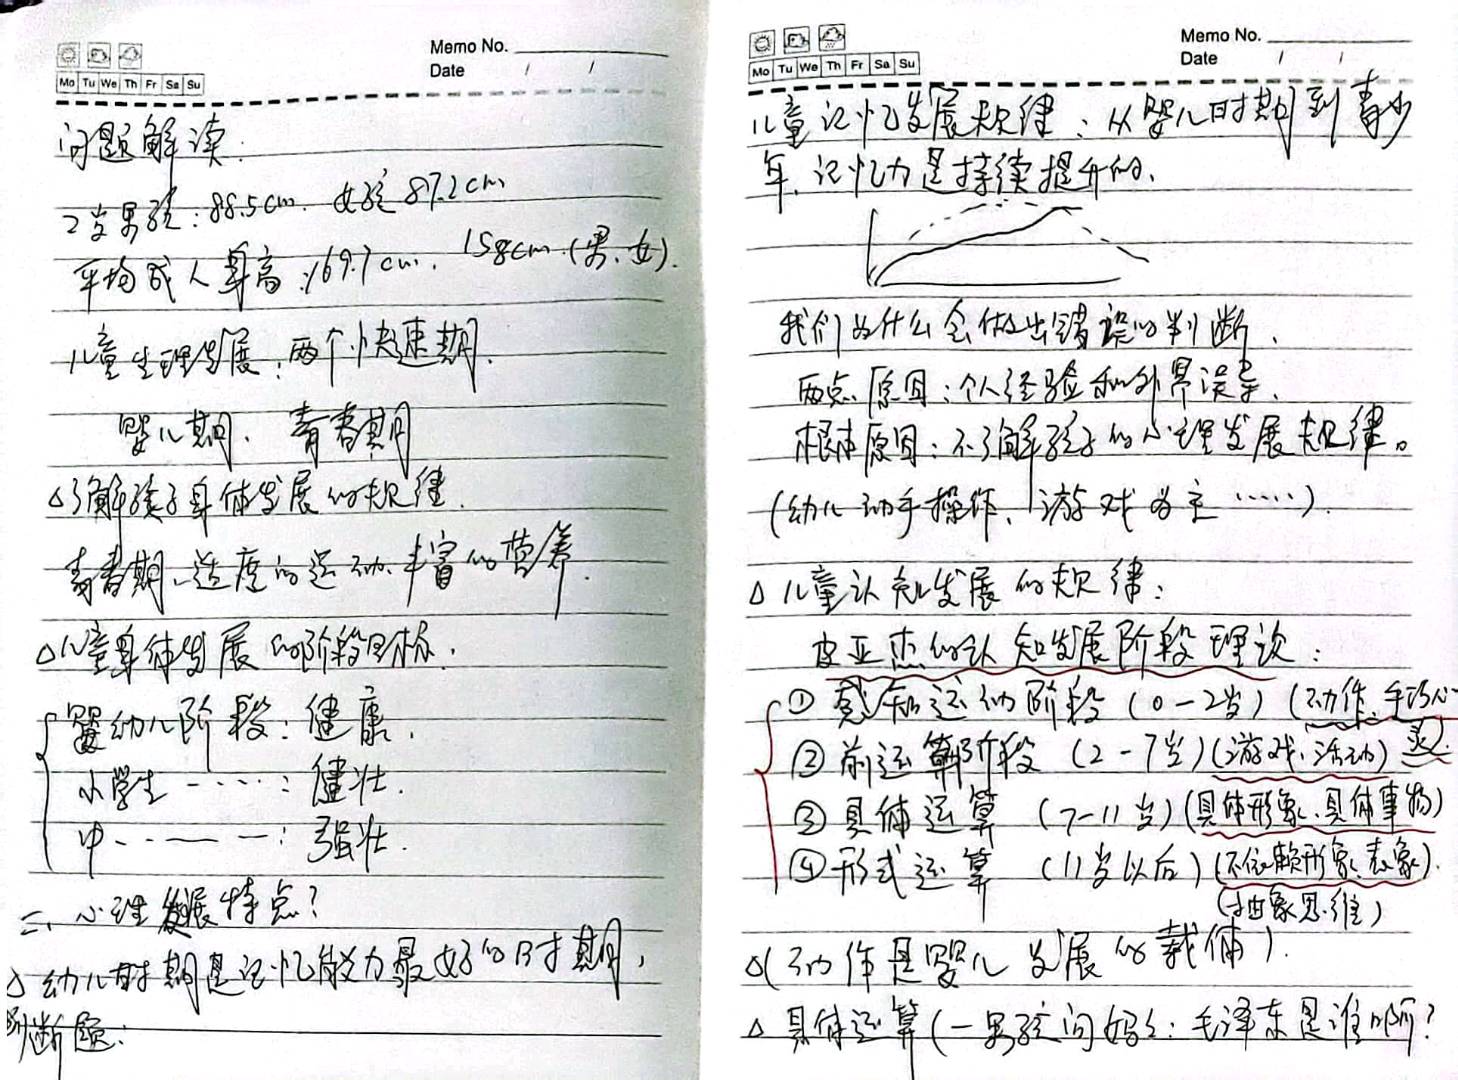 Memo No.
Date / /
Mo Tu We Th Fr Sa Su
问题解读:
2岁男孩:88.5cm. 女孩87.2cm
平均成人身高:169.7cm. 158cm(男、女).
儿童生理发展:两个快速期.
婴儿期. 青春期
△了解孩子身体发展的规律.
青春期、适度的运动、丰富的营养.
△儿童身体发展的阶段目标.
婴幼儿阶段:健康.
小学生……:健壮.
中……:强壮.
二、心理发展特点?
△幼儿时期是记忆能力最好的时期,
判断题:
Memo No.
Date / /
Mo Tu We Th Fr Sa Su
儿童记忆发展规律:从婴儿时期到青少
年、记忆力是持续提升的.
我们为什么会做出错误的判断.
两点原因:个人经验和外界误导.
根本原因:不了解孩子的心理发展规律。
(幼儿动手操作、游戏为主……).
△儿童认知发展的规律:
皮亚杰的认知发展阶段理论:
①感知运动阶段(0-2岁)(动作、手巧心
灵).
②前运算阶段(2-7岁)(游戏、活动)
③具体运算(7-11岁)(具体形象、具体事物)
④形式运算(11岁以后)(不依赖形象、表象).
(抽象思维)
△(动作是婴儿发展的载体).
△具体运算(一男孩问妈妈:毛泽东是谁的所?